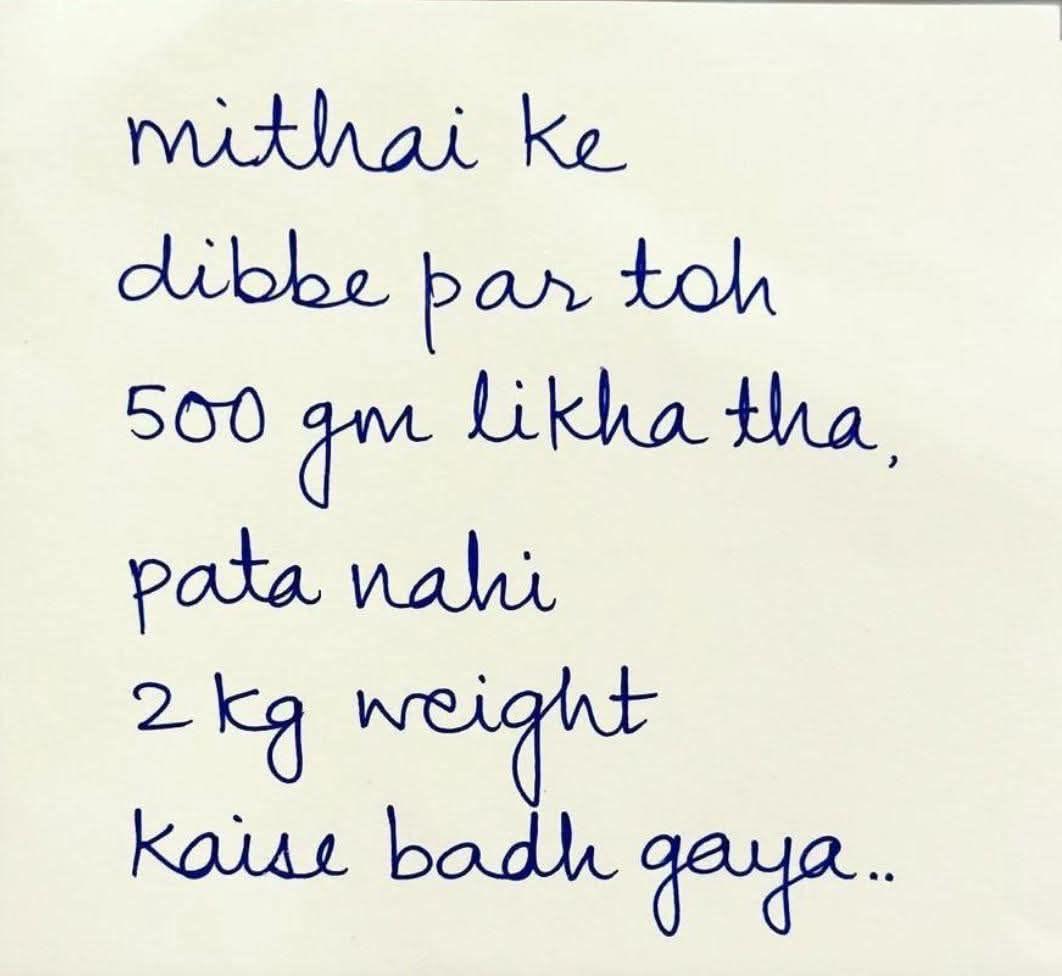 mithai ke
dibbe par toh
500 gm likha tha,
pata nahi
2 kg weight
kaise badh gaya..